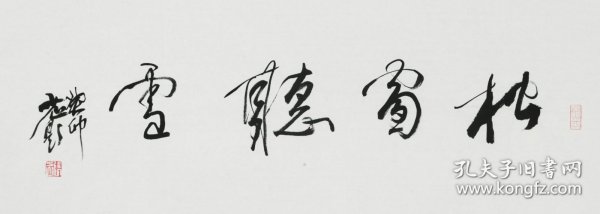 松窗聽雪
癸卯
孔夫子旧书网
www.kongfz.com